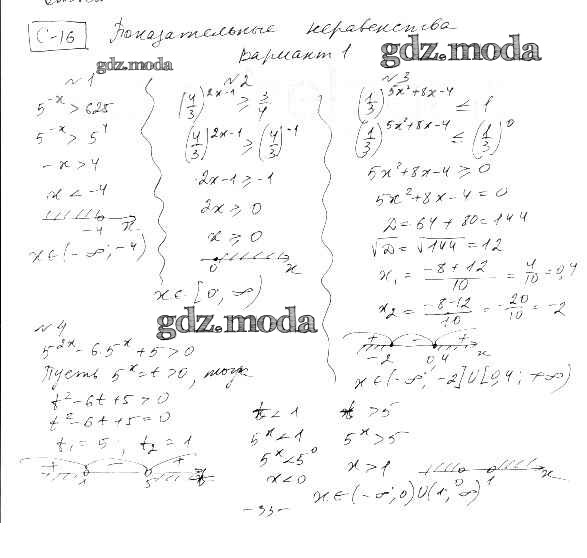 С-16 Показательные неравенства
Вариант 1
gdz.moda
gdz.moda
№1
5^{-x} > 625
5^{-x} > 5^4
-x > 4
x < -4
-4 x
x ∈ (-∞; -4)
№2
(4/3)^{2x-1} ≥ 3/4
(4/3)^{2x-1} ≥ (4/3)^{-1}
2x-1 ≥ -1
2x ≥ 0
x ≥ 0
0 x
x ∈ [0; ∞)
№3
(1/3)^{5x²+8x-4} ≤ 1
(1/3)^{5x²+8x-4} ≤ (1/3)^0
5x²+8x-4 ≥ 0
5x²+8x-4 = 0
D = 64 + 80 = 144
√D = √144 = 12
x₁ = (-8+12)/10 = 4/10 = 0,4
x₂ = (-8-12)/10 = -20/10 = -2
+ - +
-2 0,4 x
x ∈ (-∞; -2] U [0,4; +∞)
gdz.moda
№4
5^{2x} - 6·5^x + 5 > 0
Пусть 5^x = t > 0, тогда
t² - 6t + 5 > 0
t² - 6t + 5 = 0
t₁ = 5; t₂ = 1
+ - +
1 5 t
t < 1
5^x < 1
5^x < 5^0
x < 0
t > 5
5^x > 5
x > 1
0 1 x
x ∈ (-∞; 0) U (1; ∞)
-33-